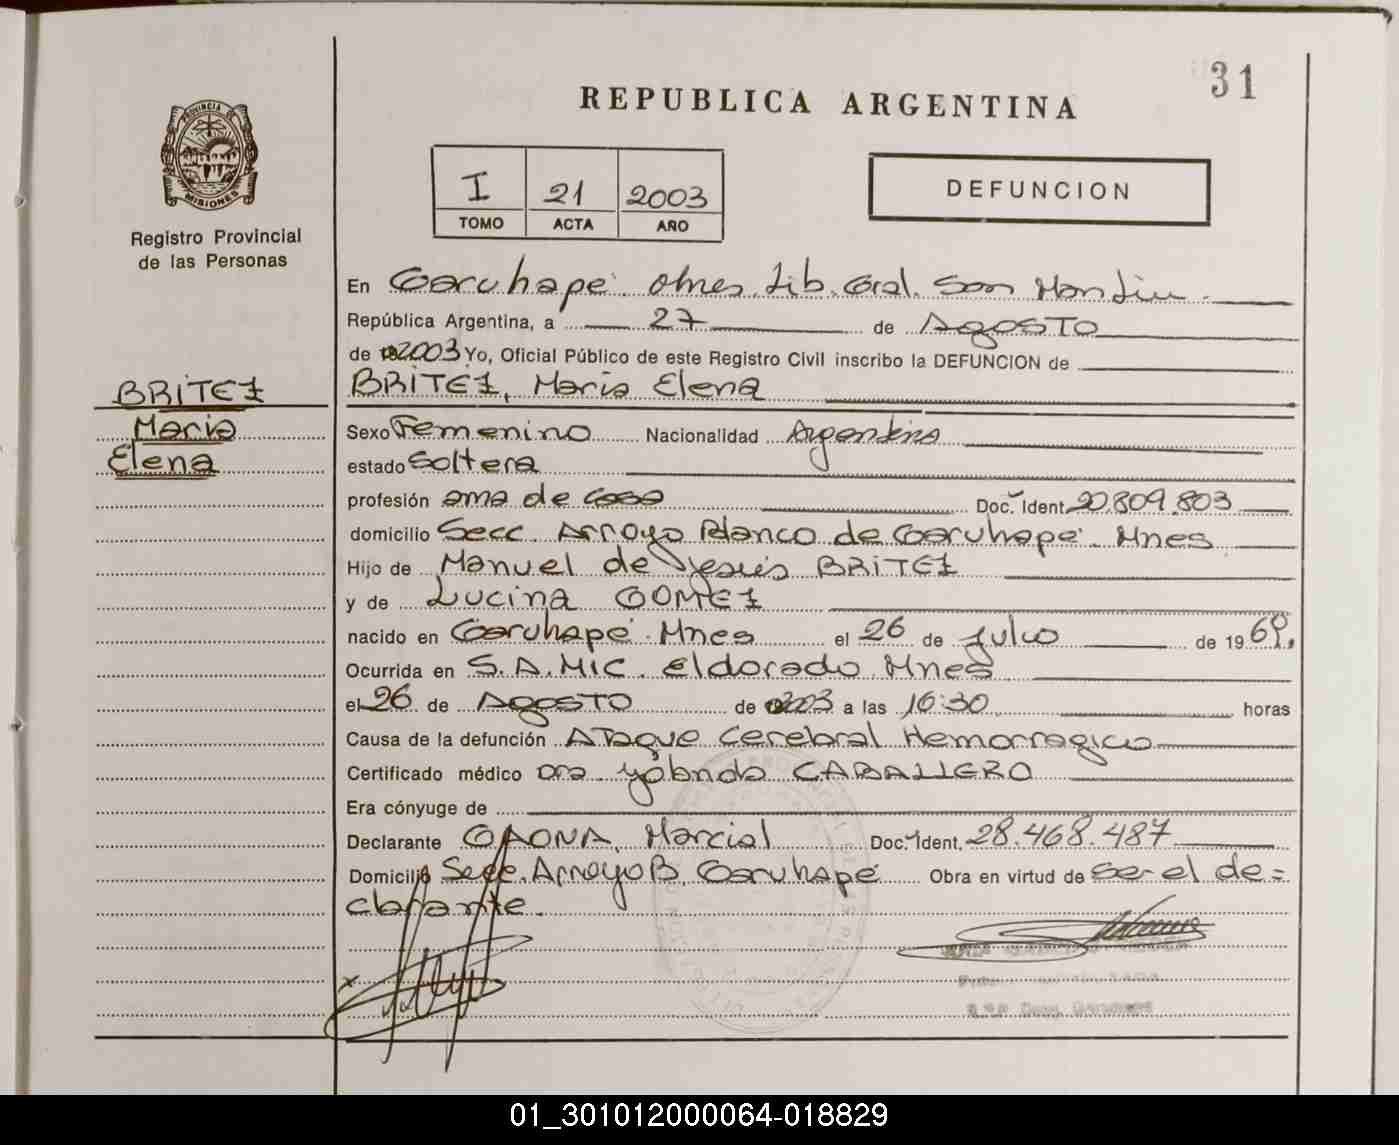 31
REPUBLICA ARGENTINA
PROVINCIA DE
MISIONES
Registro Provincial
de las Personas
I 21 2003
TOMO ACTA AÑO
DEFUNCION
En Garuhapé dtnes. Lib. Gral. San Martin
República Argentina, a 27 de Agosto
de 2003 Yo, Oficial Público de este Registro Civil inscribo la DEFUNCION de
BRITEZ, María Elena
BRITEZ
María
Elena
Sexo Femenino Nacionalidad Argentina
estado Soltera
profesión ama de casa Doc. Ident. 20.809.803
domicilio Secc. Arroyo Blanco de Garuhapé. Mnes
Hijo de Manuel de Jesús BRITEZ
y de Lucina GOMEZ
nacido en Garuhapé. Mnes el 26 de Julio de 1969.
Ocurrida en S.A.MIC. Eldorado. Mnes
el 26 de AgosTO de 2003 a las 16:30 horas
Causa de la defunción ATaque Cerebral Hemorragico
Certificado médico Dra. CABALLERO
Era cónyuge de
Declarante GAONA, Marcial Doc. Ident. 28.468.487
Domicilio Secc. Arroyo B. Garuhapé Obra en virtud de Ser el de=
clarante.
01_301012000064-018829